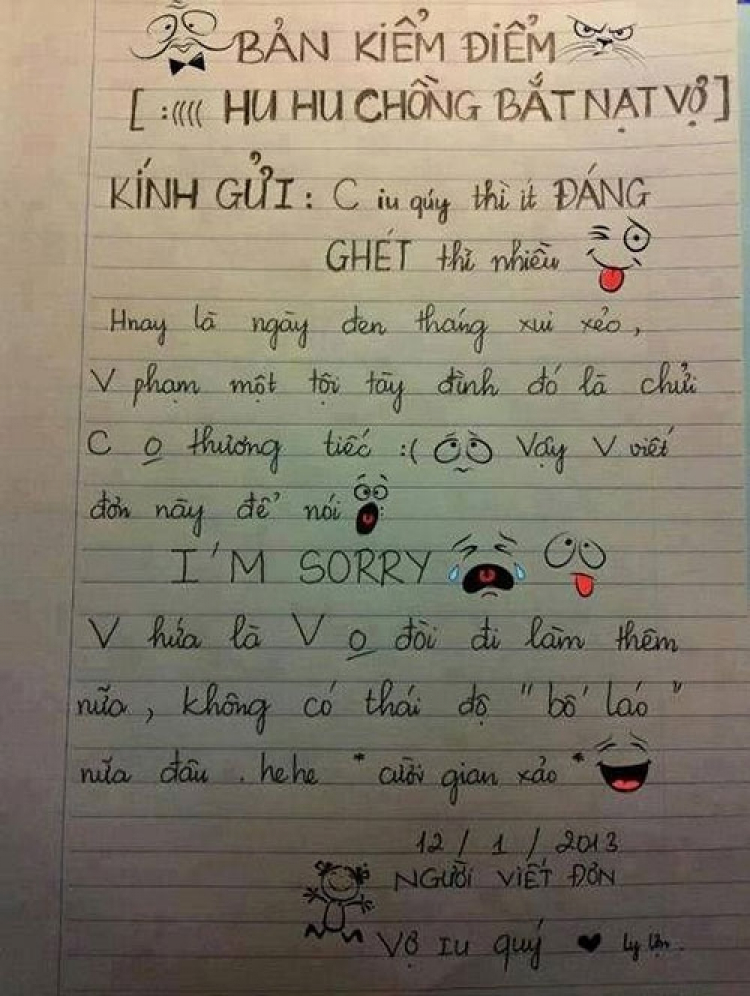 BẢN KIỂM ĐIỂM
[ :(((( HU HU CHỒNG BẮT NẠT VỢ ]
KÍNH GỬI : C iu qúy thì ít ĐÁNG
GHÉT thì nhiều
Hnay là ngày đen tháng xui xẻo ,
V phạm một tội tày đình đó là chửi
C o thương tiếc :( Vậy V viết
đơn này để nói :
I'M SORRY
V hứa là V o đòi đi làm thêm
nữa , không có thái độ " bố láo "
nữa đâu . hehe * cười gian xảo *
12 / 1 / 2013
NGƯỜI VIẾT ĐƠN
VỢ IU quý ♥